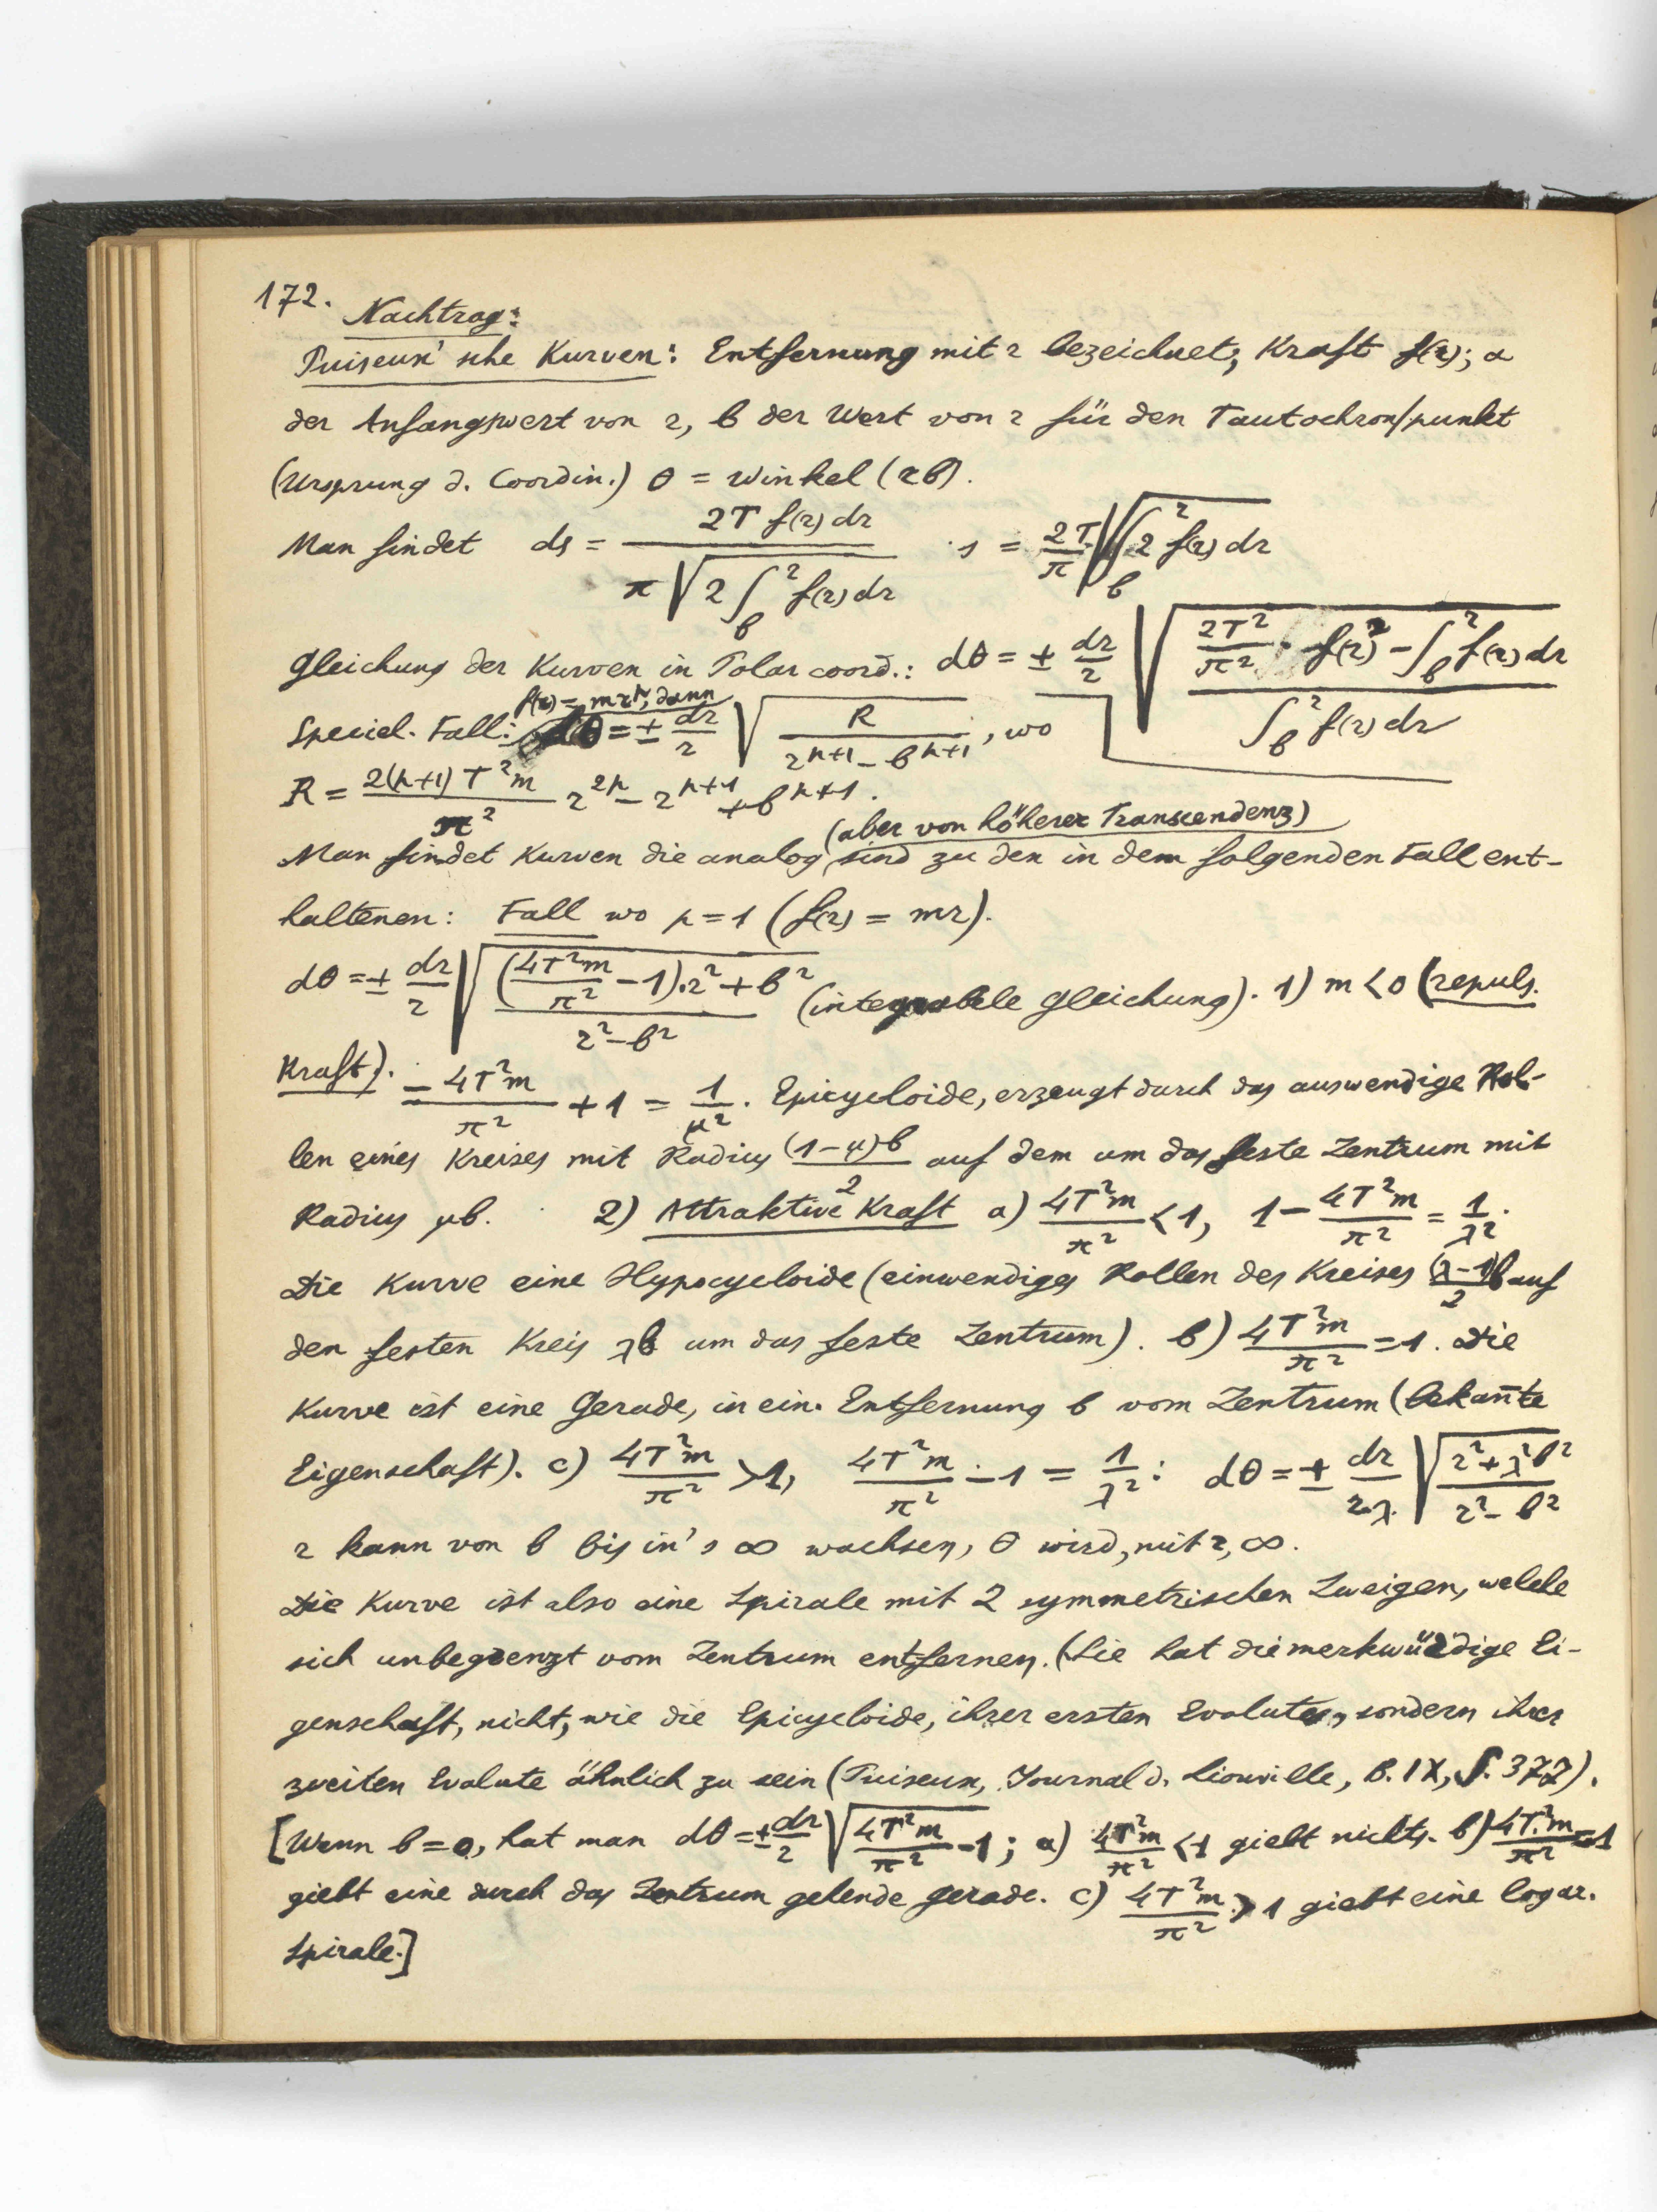 172.
Nachtrag:
Puiseux'sche Kurven: Entfernung mit r bezeichnet, Kraft f(r); a
der Anfangswert von r, b der Wert von r für den Tautochronspunkt
(Ursprung d. Coordin.) θ = Winkel (rb).
Man findet ds = 2T f(r) dr / π √(2∫_b^r f(r) dr) s = 2T/π √(∫_b^r 2 f(r) dr)
Gleichung der Kurven in Polarcoord.: dθ = ± dr/r √((2T²/π² · f(r)² − ∫_b^r f(r) dr) / ∫_b^r f(r) dr)
f(r) = mr^μ, dann
Speciel. Fall: dθ = ± dr/r √(R / (r^{μ+1} − b^{μ+1})), wo
R = 2(μ+1)T²m/π² r^{2μ} − r^{μ+1} + b^{μ+1}.
(aber von höherer Transcendenz)
Man findet Kurven die analog sind zu den in dem folgenden Fall ent-
haltenen: Fall wo μ = 1 (f(r) = mr).
dθ = ± dr/r √(((4T²m/π² − 1)·r² + b²) / (r² − b²)) (integrabele Gleichung). 1) m < 0 (repuls.
Kraft). − 4T²m/π² + 1 = 1/μ². Epicycloide, erzeugt durch das auswendige Rol-
len eines Kreises mit Radius (1−μ)b/2 auf dem um das feste Zentrum mit
Radius μb. 2) Attraktive Kraft a) 4T²m/π² < 1, 1 − 4T²m/π² = 1/λ².
Die Kurve eine Hypocycloide (einwendiges Rollen des Kreises (λ−1)b/2 auf
den festen Kreis λb um das feste Zentrum). b) 4T²m/π² = 1. Die
Kurve ist eine Gerade, in ein. Entfernung b vom Zentrum (bekan̄te
Eigenschaft). c) 4T²m/π² > 1, 4T²m/π² − 1 = 1/λ²: dθ = ± dr/r·λ √((r² + λ²b²) / (r² − b²))
r kann von b bis in's ∞ wachsen, θ wird, mit r, ∞.
Die Kurve ist also eine Spirale mit 2 symmetrischen Zweigen, welche
sich unbegrenzt vom Zentrum entfernen. (Sie hat die merkwürdige Ei-
genschaft, nicht, wie die Epicycloide, ihrer ersten Evolute, sondern ihrer
zweiten Evolute ähnlich zu sein (Puiseux, Journal d. Liouville, B. IX, S. 372).
[Wenn b = 0, hat man dθ = ± dr/r √(4T²m/π² − 1); a) 4T²m/π² < 1 giebt nichts. b) 4T²m/π² = 1
giebt eine durch das Zentrum gehende Gerade. c) 4T²m/π² > 1 giebt eine logar.
Spirale.]